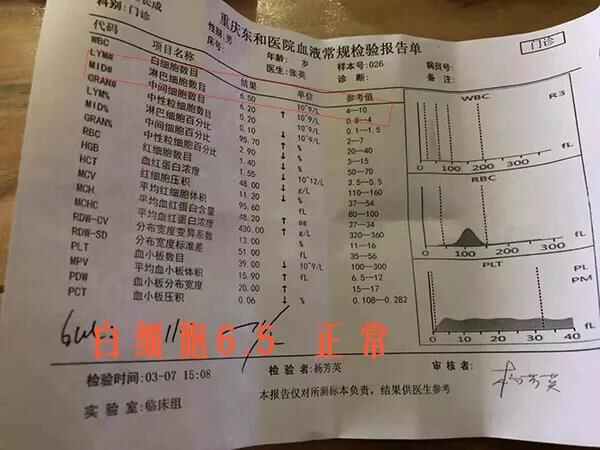 长成
科别:门诊
重庆东和医院血液常规检验报告单
门诊
性别:男
年龄: 岁
样本号:026
病员号:
床号:
医生:张英
诊断:
备注:
代码 项目名称 结果 单位 参考值
WBC 白细胞数目 6.50 10^9/L 4—10
LYM# 淋巴细胞数目 6.20 ↑ 10^9/L 0.8—4
MID# 中间细胞数目 0.20 10^9/L 0.1—1.5
GRAN# 中性粒细胞数目 0.10 ↓ 10^9/L 2—7
LYM% 淋巴细胞百分比 95.70 ↑ % 20—40
MID% 中间细胞百分比 2.90 ↓ % 3—15
GRAN% 中性粒细胞百分比 1.40 ↓ % 50—70
RBC 红细胞数目 1.55 ↓ 10^12/L 3.5—5.5
HGB 血红蛋白浓度 48.00 ↓ g/L 110—160
HCT 红细胞压积 11.20 ↓ % 37—54
MCV 平均红细胞体积 95.60 fL 80—100
MCH 平均血红蛋白含量 48.20 ↑ 27—34
MCHC 平均血红蛋白浓度 430.00 ↑ g/L 320—360
RDW-CV 分布宽度变异系数 13.00 % 11—16
RDW-SD 分布宽度标准差 51.00 fL 35—56
PLT 血小板数目 39.00 ↓ 10^9/L 100—300
MPV 平均血小板体积 15.90 ↑ fL 6.5—12
PDW 血小板分布宽度 20.00 ↑ 15—17
PCT 血小板压积 0.06 ↓ % 0.108—0.282
WBC R3
0 100 200 fL
RBC
0 100 200 fL
PLT PL
PM
0 10 20 30 40
白细胞6.5 正常
检验时间:03-07 15:08
检验者:杨芳英
审核者:
杨芳英
本报告仅对所测标本负责，结果供医生参考
实验室:临床组